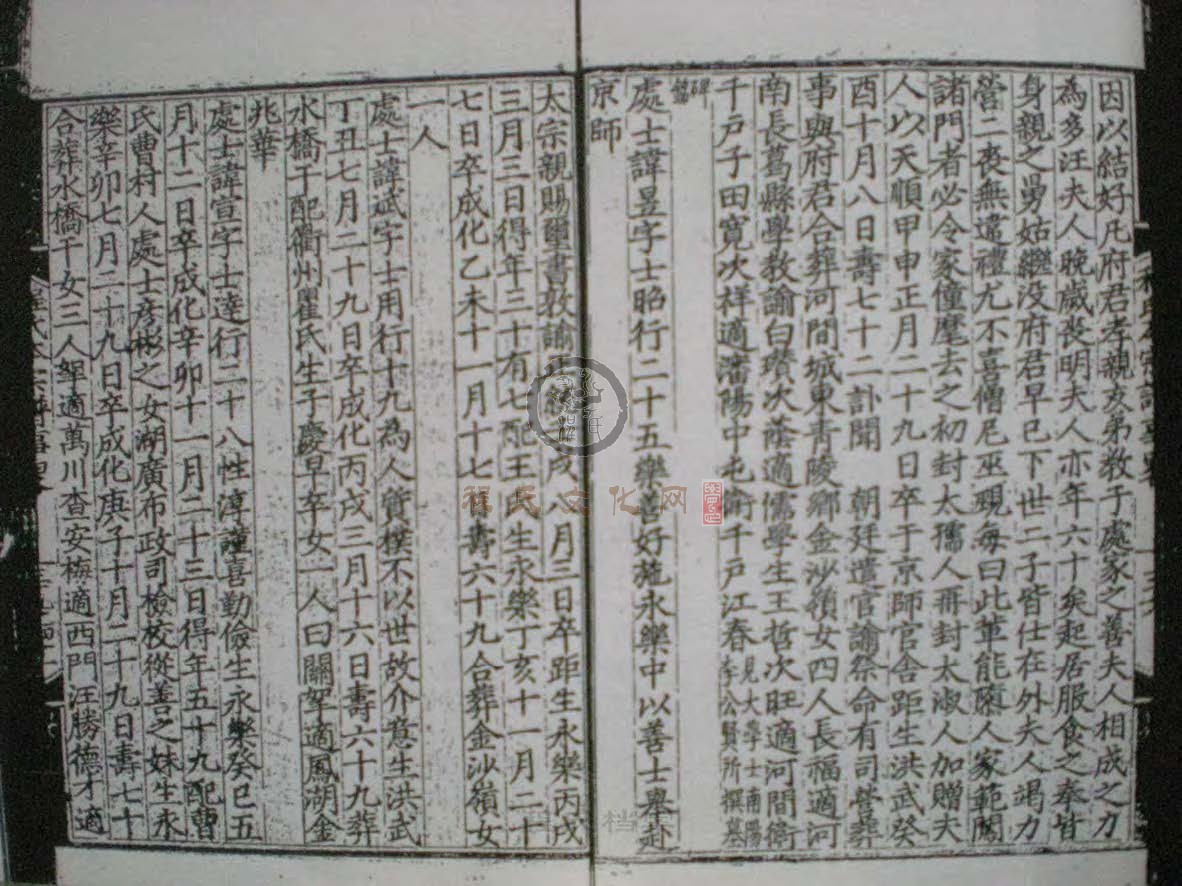 因以結好凡府君孝親友弟教子處家之善夫人相成之力
為多汪夫人晚歲喪明夫人亦年六十矣起居服食之奉皆
身親之舅姑繼没府君早已下世二子皆仕在外夫人竭力
營二喪無遺禮尤不喜僧尼巫覡每曰此輩能𨻶人家範闖
諸門者必令家僮麾去之初封太孺人再封太淑人加贈夫
人以天順甲申正月二十九日卒于京師官舍距生洪武癸
酉十月八日壽七十二訃聞 朝廷遣官諭祭命有司營葬
事與府君合葬河間城東青陵鄉金沙嶺女四人長福適河
南長葛縣學教諭白瓚次蔭適儒學生王哲次旺適河間衛
千戶子田寬次祥適瀋陽中屯衛千戶江春見大學士南陽李公賢所撰墓
碑銘
處士諱昱字士昭行二十五樂善好施永樂中以善士舉赴
京師
太宗親賜璽書敦諭 戌八月三日卒距生永樂丙戌
三月三日得年三十有七配王氏生永樂丁亥十一月二十
七日卒成化乙未十一月十七 壽六十九合葬金沙嶺女
一人
處士諱斌字士用行十九為人質樸不以世故介意生洪武
丁丑七月二十九日卒成化丙戌三月十六日壽六十九葬
水橋干配衢州瞿氏生子慶早卒女一人曰關㜝適鳳湖金
兆華
處士諱宣字士達行二十八性淳謹喜勤儉生永樂癸巳五
月十二日卒成化辛卯十一月二十三日得年五十九配曹
氏曹村人處士彥彬之女湖廣布政司檢校從善之妹生永
樂辛卯七月二十九日卒成化庚子十月二十九日壽七十
合葬水橋干女三人㜝適萬川查安梅適西門汪勝德才適
程氏文化网